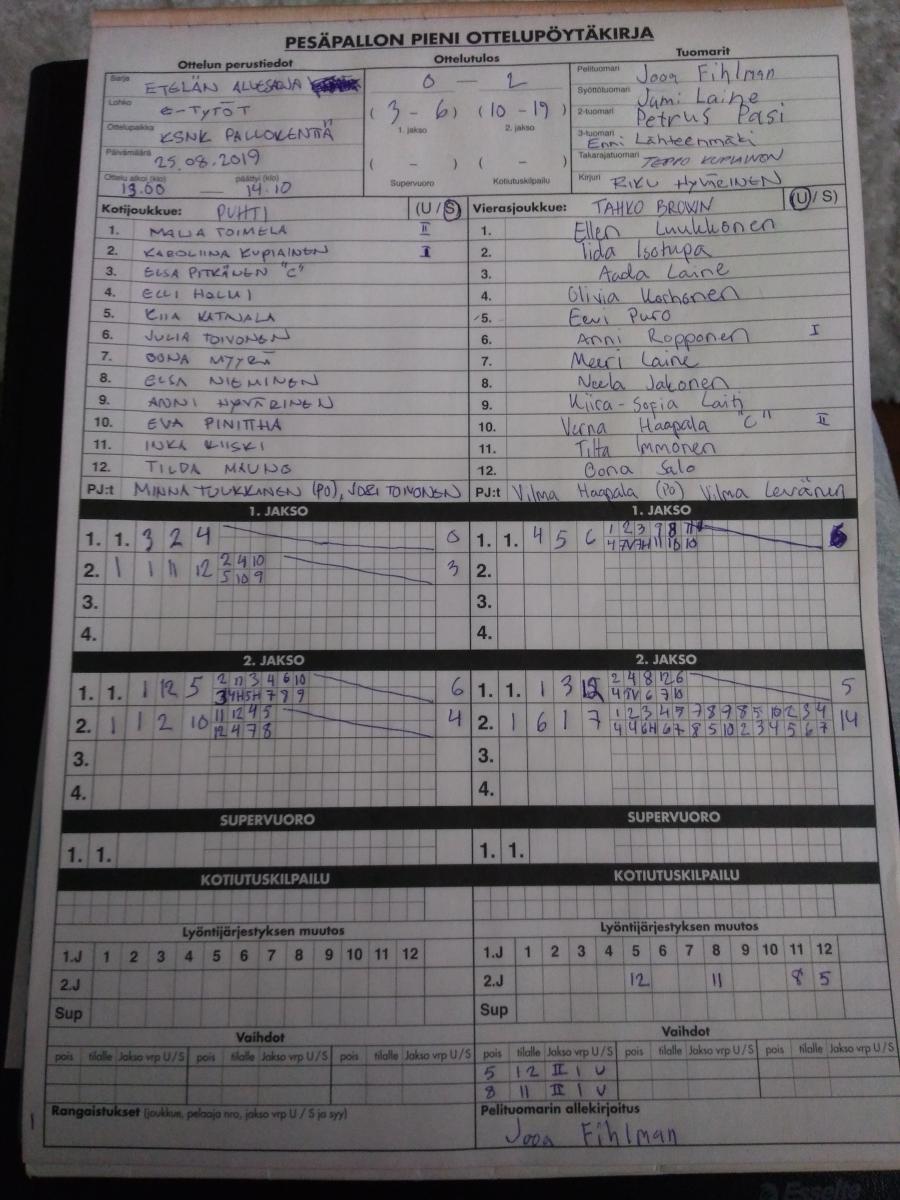 PESÄPALLON PIENI OTTELUPÖYTÄKIRJA
Ottelun perustiedot Ottelutulos Tuomarit
Sarja ETELÄN ALUESARJA
Lohko E-TYTÖT
Ottelupaikka KSNK PALLOKENTTÄ
Päivämäärä 25.08.2019
Ottelu alkoi (klo) 13.00 — päättyi (klo) 14.10
0 — 2
(3 - 6) (10 - 19)
1. jakso 2. jakso
( - ) ( - )
Supervuoro Kotiutuskilpailu
Pelituomari Joon Fihlman
Syöttötuomari Jami Laine
2-tuomari Petrus Pasi
3-tuomari Enni Lähteenmäki
Takarajatuomari TEPPO KUPIAINEN
Kirjuri RIKU HYVÄRINEN
Kotijoukkue: PUHTI (U / S) Vierasjoukkue: TAHKO BROWN (U / S)
1. MALJA TOIMELA II 1. Ellen Luukkonen
2. KAROLIINA KUPIAINEN I 2. Iida Isotupa
3. ELSA PITKÄNEN "C" 3. Aada Laine
4. ELLI HOLMI 4. Olivia Korhonen
5. KIIA KATAJALA 5. Eevi Puro
6. JULIA TOIVONEN 6. Anni Ropponen I
7. OONA MYYRÄ 7. Meeri Laine
8. ELSA NIEMINEN 8. Neela Jakonen
9. ANNI HYVÄRINEN 9. Kiira-Sofia Laiti
10. EVA PINITTHA 10. Verna Haapala "C" II
11. INKA KIISKI 11. Tilta Immonen
12. TILDA MAUNO 12. Oona Salo
PJ:t MINNA TULKKANEN (PO), JORI TOIVONEN PJ:t Vilma Haapala (PO) Vilma Levänen
1. JAKSO 1. JAKSO
1. 1. 3 2 4 0 1. 1. 4 5 6 1 2 3 9 8 6
2. 1 1 11 12 2 4 10 3 2.
5 10 9
3. 3.
4. 4.
2. JAKSO 2. JAKSO
1. 1. 1 12 5 2 11 3 4 6 10 6 1. 1. 1 3 12 2 4 8 12 6 5
3 4H 5H 7 8 9 4 5V 6 7 10
2. 1 1 2 10 11 12 4 5 4 2. 1 6 1 7 1 2 3 4 5 7 8 9 8 5 10 2 3 4 14
12 4 7 8 4 4 6H 6 7 8 5 10 2 3 4 5 6 7
3. 3.
4. 4.
SUPERVUORO SUPERVUORO
1. 1. 1. 1.
KOTIUTUSKILPAILU KOTIUTUSKILPAILU
Lyöntijärjestyksen muutos Lyöntijärjestyksen muutos
1.J 1 2 3 4 5 6 7 8 9 10 11 12 1.J 1 2 3 4 5 6 7 8 9 10 11 12
2.J 2.J 12 11 8 5
Sup Sup
Vaihdot Vaihdot
pois tilalle Jakso vrp U / S pois tilalle Jakso vrp U / S pois tilalle Jakso vrp U / S pois tilalle Jakso vrp U / S pois tilalle Jakso vrp U / S pois tilalle Jakso vrp U / S
5 12 II 1 U
8 11 II 1 U
Rangaistukset (joukkue, pelaaja nro, jakso vrp U / S ja syy) Pelituomarin allekirjoitus
Joon Fihlman